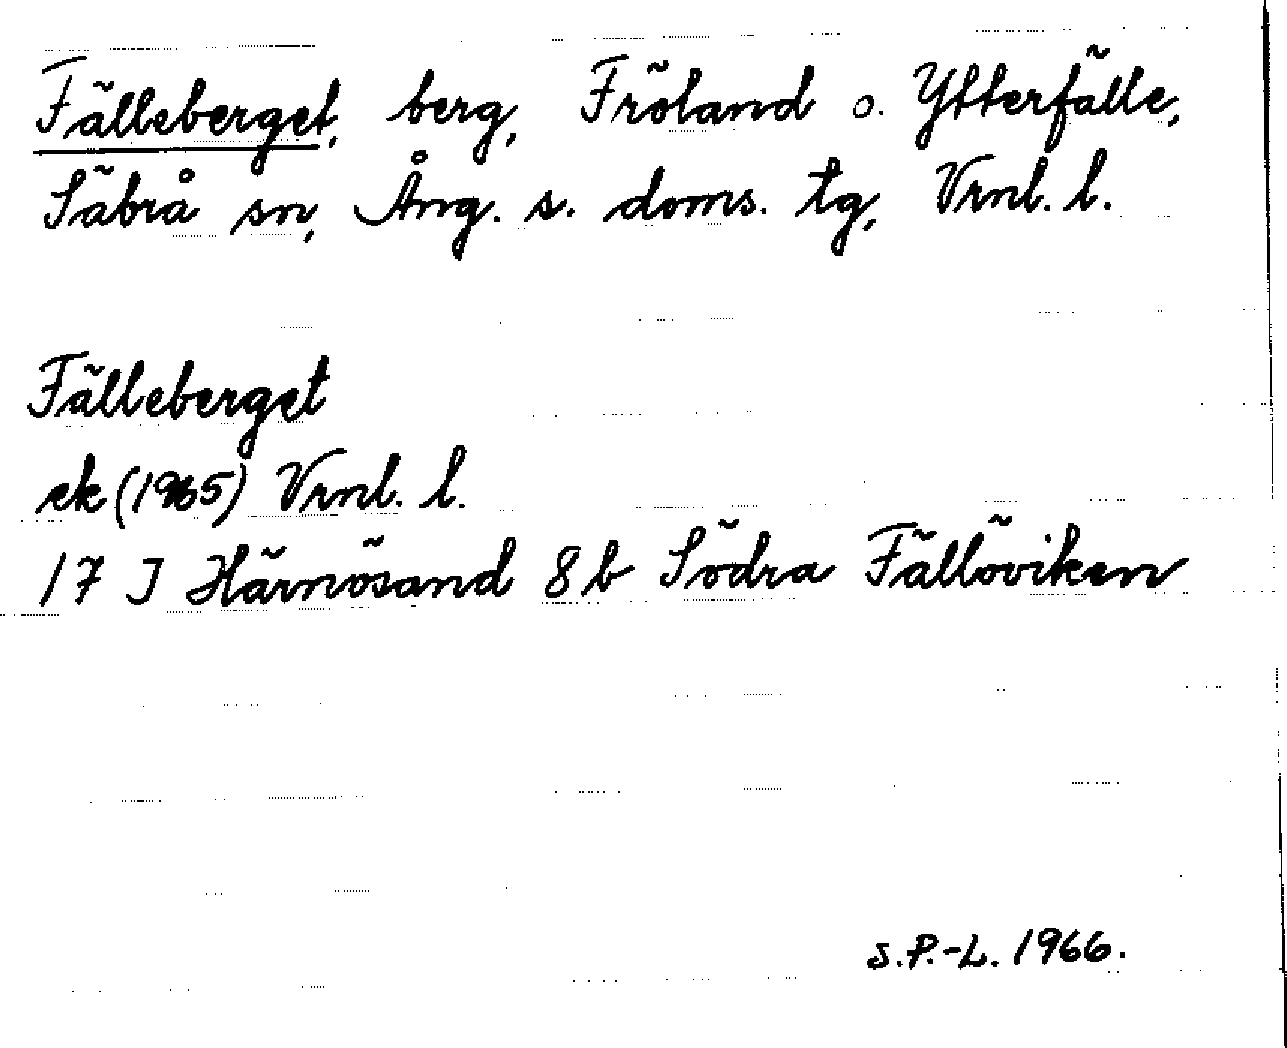 Fälleberget, berg, Fröland o. Ytterfälle,
Säbrå sn, Ång. s. doms. tg, Vrnl. l.
Fälleberget
ek (1965) Vrnl. l.
17 I Härnösand 8 b Södra Fällöviken
S.P.-L. 1966.